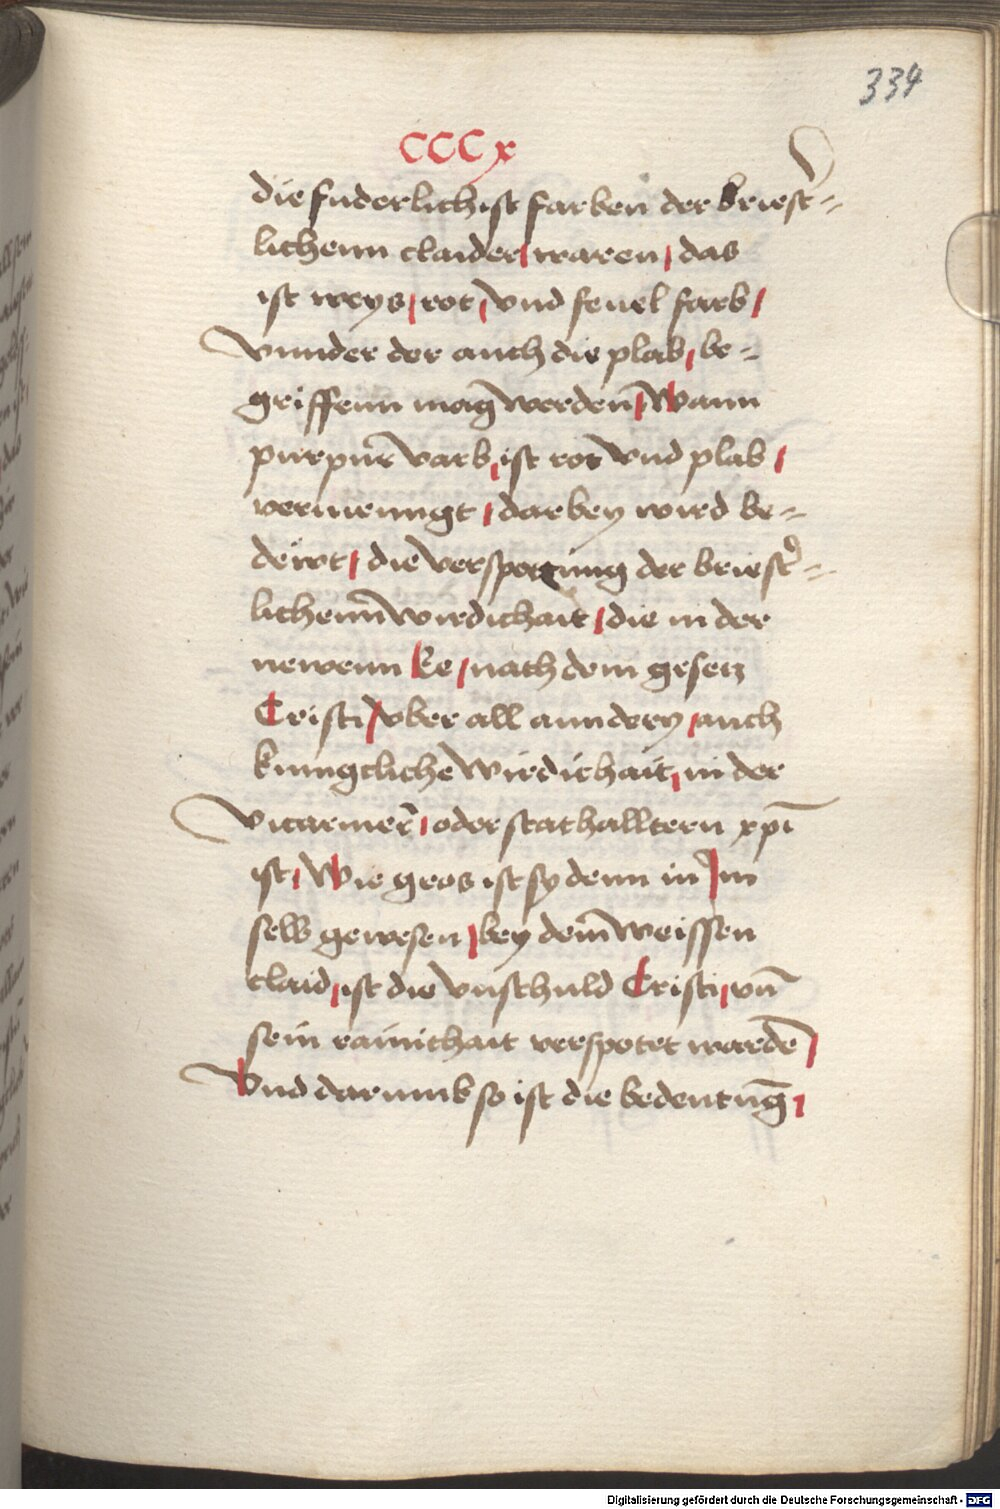 334
CCCx
die fuderlichist farben der briest̉=
lichenn claider / waren / das
ist weys / rot / vnd feuel farb /
Vnnder der auch die plab / be=
griffenn mag werden̄ / Wann
purpur varb / ist rot vnd plab /
vermenngt / darbey wird be=
dewt / die verspottung der briest̉=
lichenn̄ wirdichait / die in der
newenn Ee / nach dem gesetz
Cristi / vber all anndery / auch
kunngcliche wirdichait / in der
Vicarrier̄ / oder stathalltern xp̄i
ist / Wie gros ist sy denn in Im
selb gewesen / bey dem̄ weissen
claid / ist die vnschuld Cristi / vn̄
sein rainichait verspotet wordē /
Vnd darumb so ist die bedeutūg /
Digitalisierung gefördert durch die Deutsche Forschungsgemeinschaft - DFG